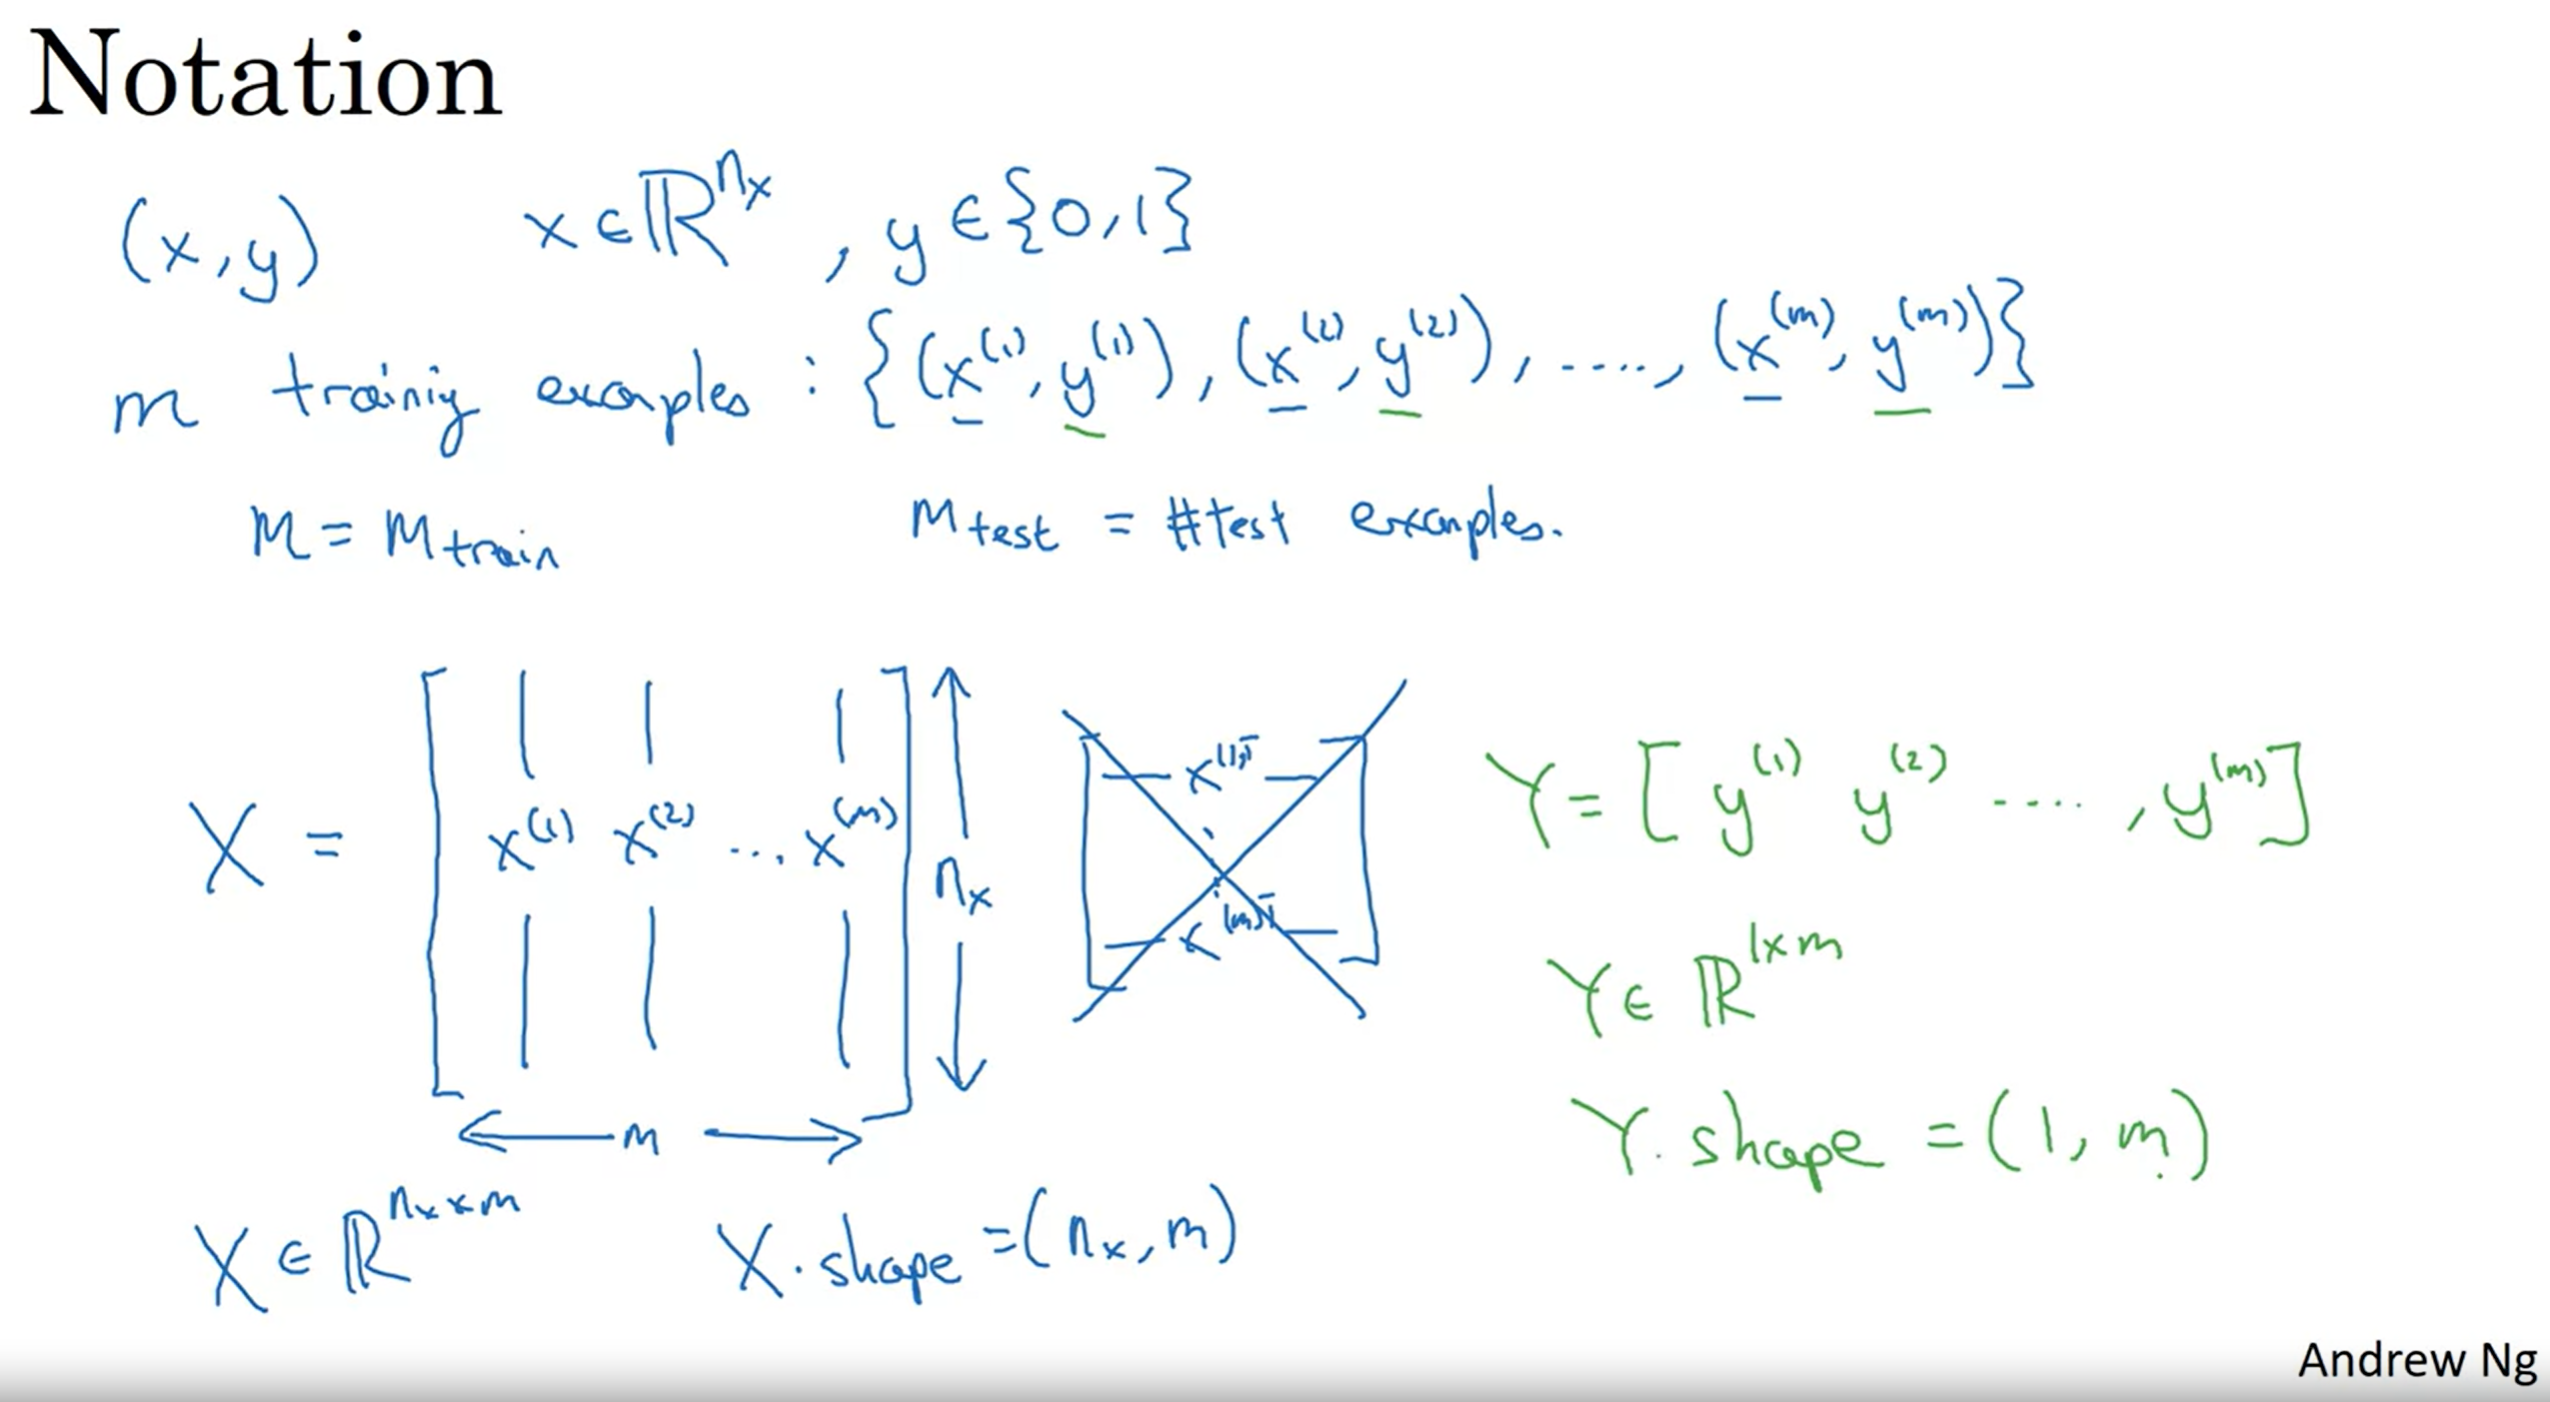 Notation
(x,y) x∈ℝ^{n_x}, y∈{0,1}
m training examples : {(x^{(1)}, y^{(1)}), (x^{(2)}, y^{(2)}), ....., (x^{(m)}, y^{(m)})}
M = M_{train} M_{test} = #test examples.
X = [x^{(1)} x^{(2)} ... x^{(m)}] n_x
m
x^{(1)T}
⋮
x^{(m)T}
Y = [y^{(1)} y^{(2)} ...., y^{(m)}]
Y∈ℝ^{1×m}
Y.shape = (1, m)
X∈ℝ^{n_x×m} X.shape = (n_x, m)
Andrew Ng